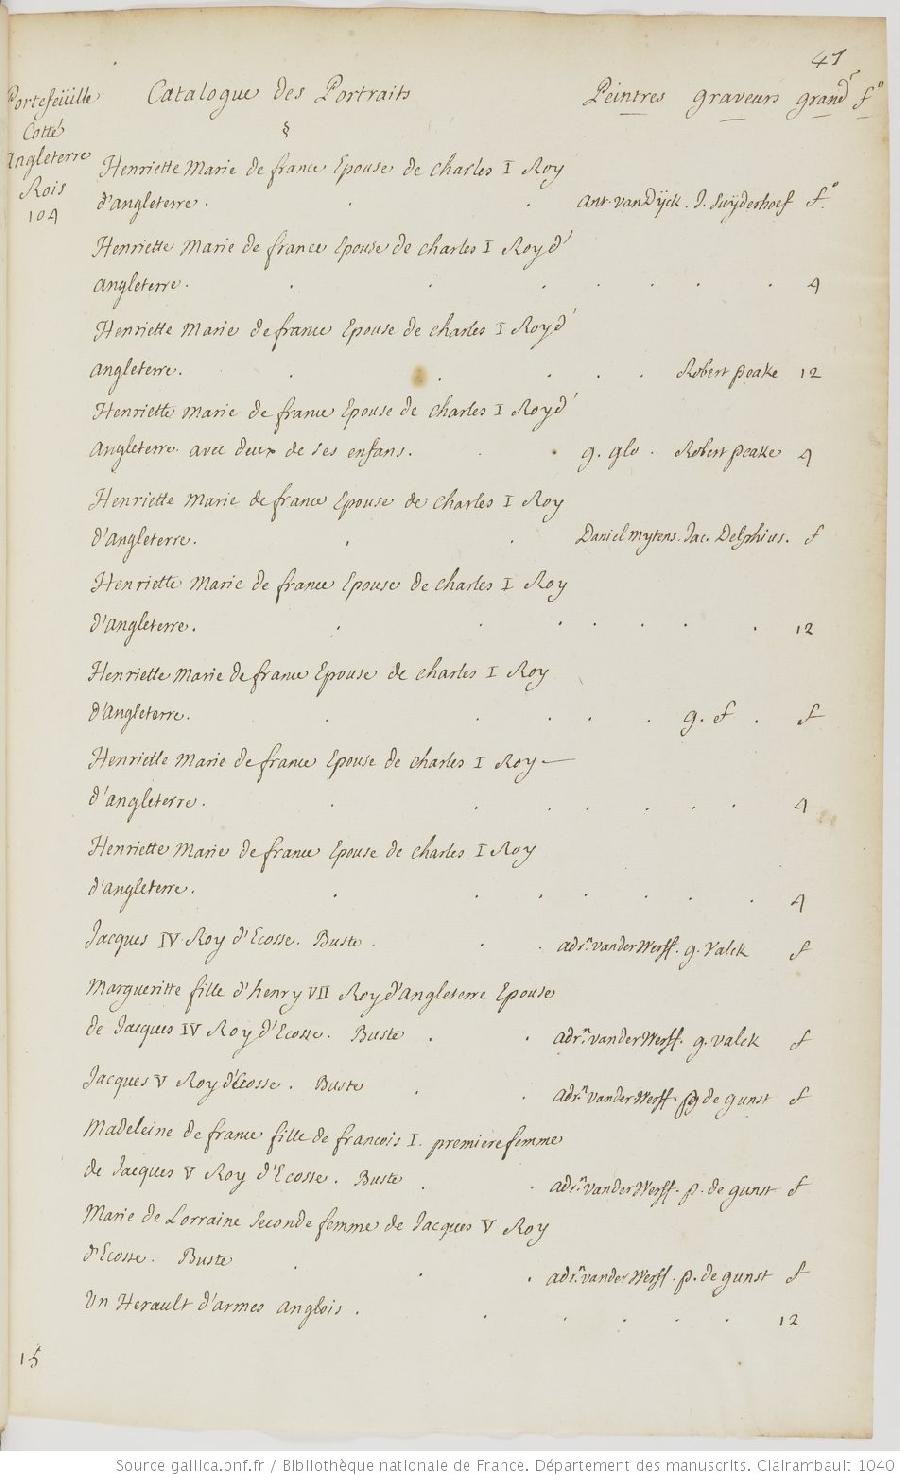 41
Portefeüille Catalogue des Portraits Peintres graveurs grandr fo
Cotté §
Angleterre
Rois
104
Henriette Marie de france Epouse de charles I Roy
d'angleterre. Ant. vanDÿck. J. Suÿderhoef fo
Henriette Marie de france Epouse de charles I Roy d'
angleterre. 4
Henriette Marie de france Epouse de charles I Roy d'
angleterre. Robert peake 12
Henriette Marie de france Epouse de charles I Roy d'
Angleterre. avec deux de ses enfans. g. glo. Robert peake 4
Henriette Marie de france Epouse de charles I Roy
d'Angleterre. Daniel mytens. Jac. Delphius. f
Henriette Marie de france Epouse de charles I Roy
d'Angleterre. 12
Henriette Marie de france Epouse de charles I Roy
d'Angleterre. g. ef. f
Henriette Marie de france Epouse de charles I Roy —
d'angleterre. 4
Henriette Marie de france Epouse de charles I Roy
d'angleterre. 4
Jacques IV Roy d'Ecosse. Buste. adrn. vander Werff. g. Valck f
Margueritte fille d'henry VII Roy d'Angleterre Epouse
de Jacques IV Roy d'Ecosse. Buste. adrn. vander Werff. g. valck f
Jacques V Roy d'Ecosse. Buste. adrn. vander Werff. p de gunst f
Madeleine de france fille de francois I. premiere femme
de Jacques V Roy d'Ecosse. Buste. adrn. vander Werff. p. de gunst f
Marie de Lorraine Seconde femme de Jacques V Roy
d'Ecosse. Buste. adrn. vander Werff. p. de gunst f
Un Herault d'armes anglois. 12
15
Source gallica.bnf.fr / Bibliothèque nationale de France. Département des manuscrits. Clairambault 1040